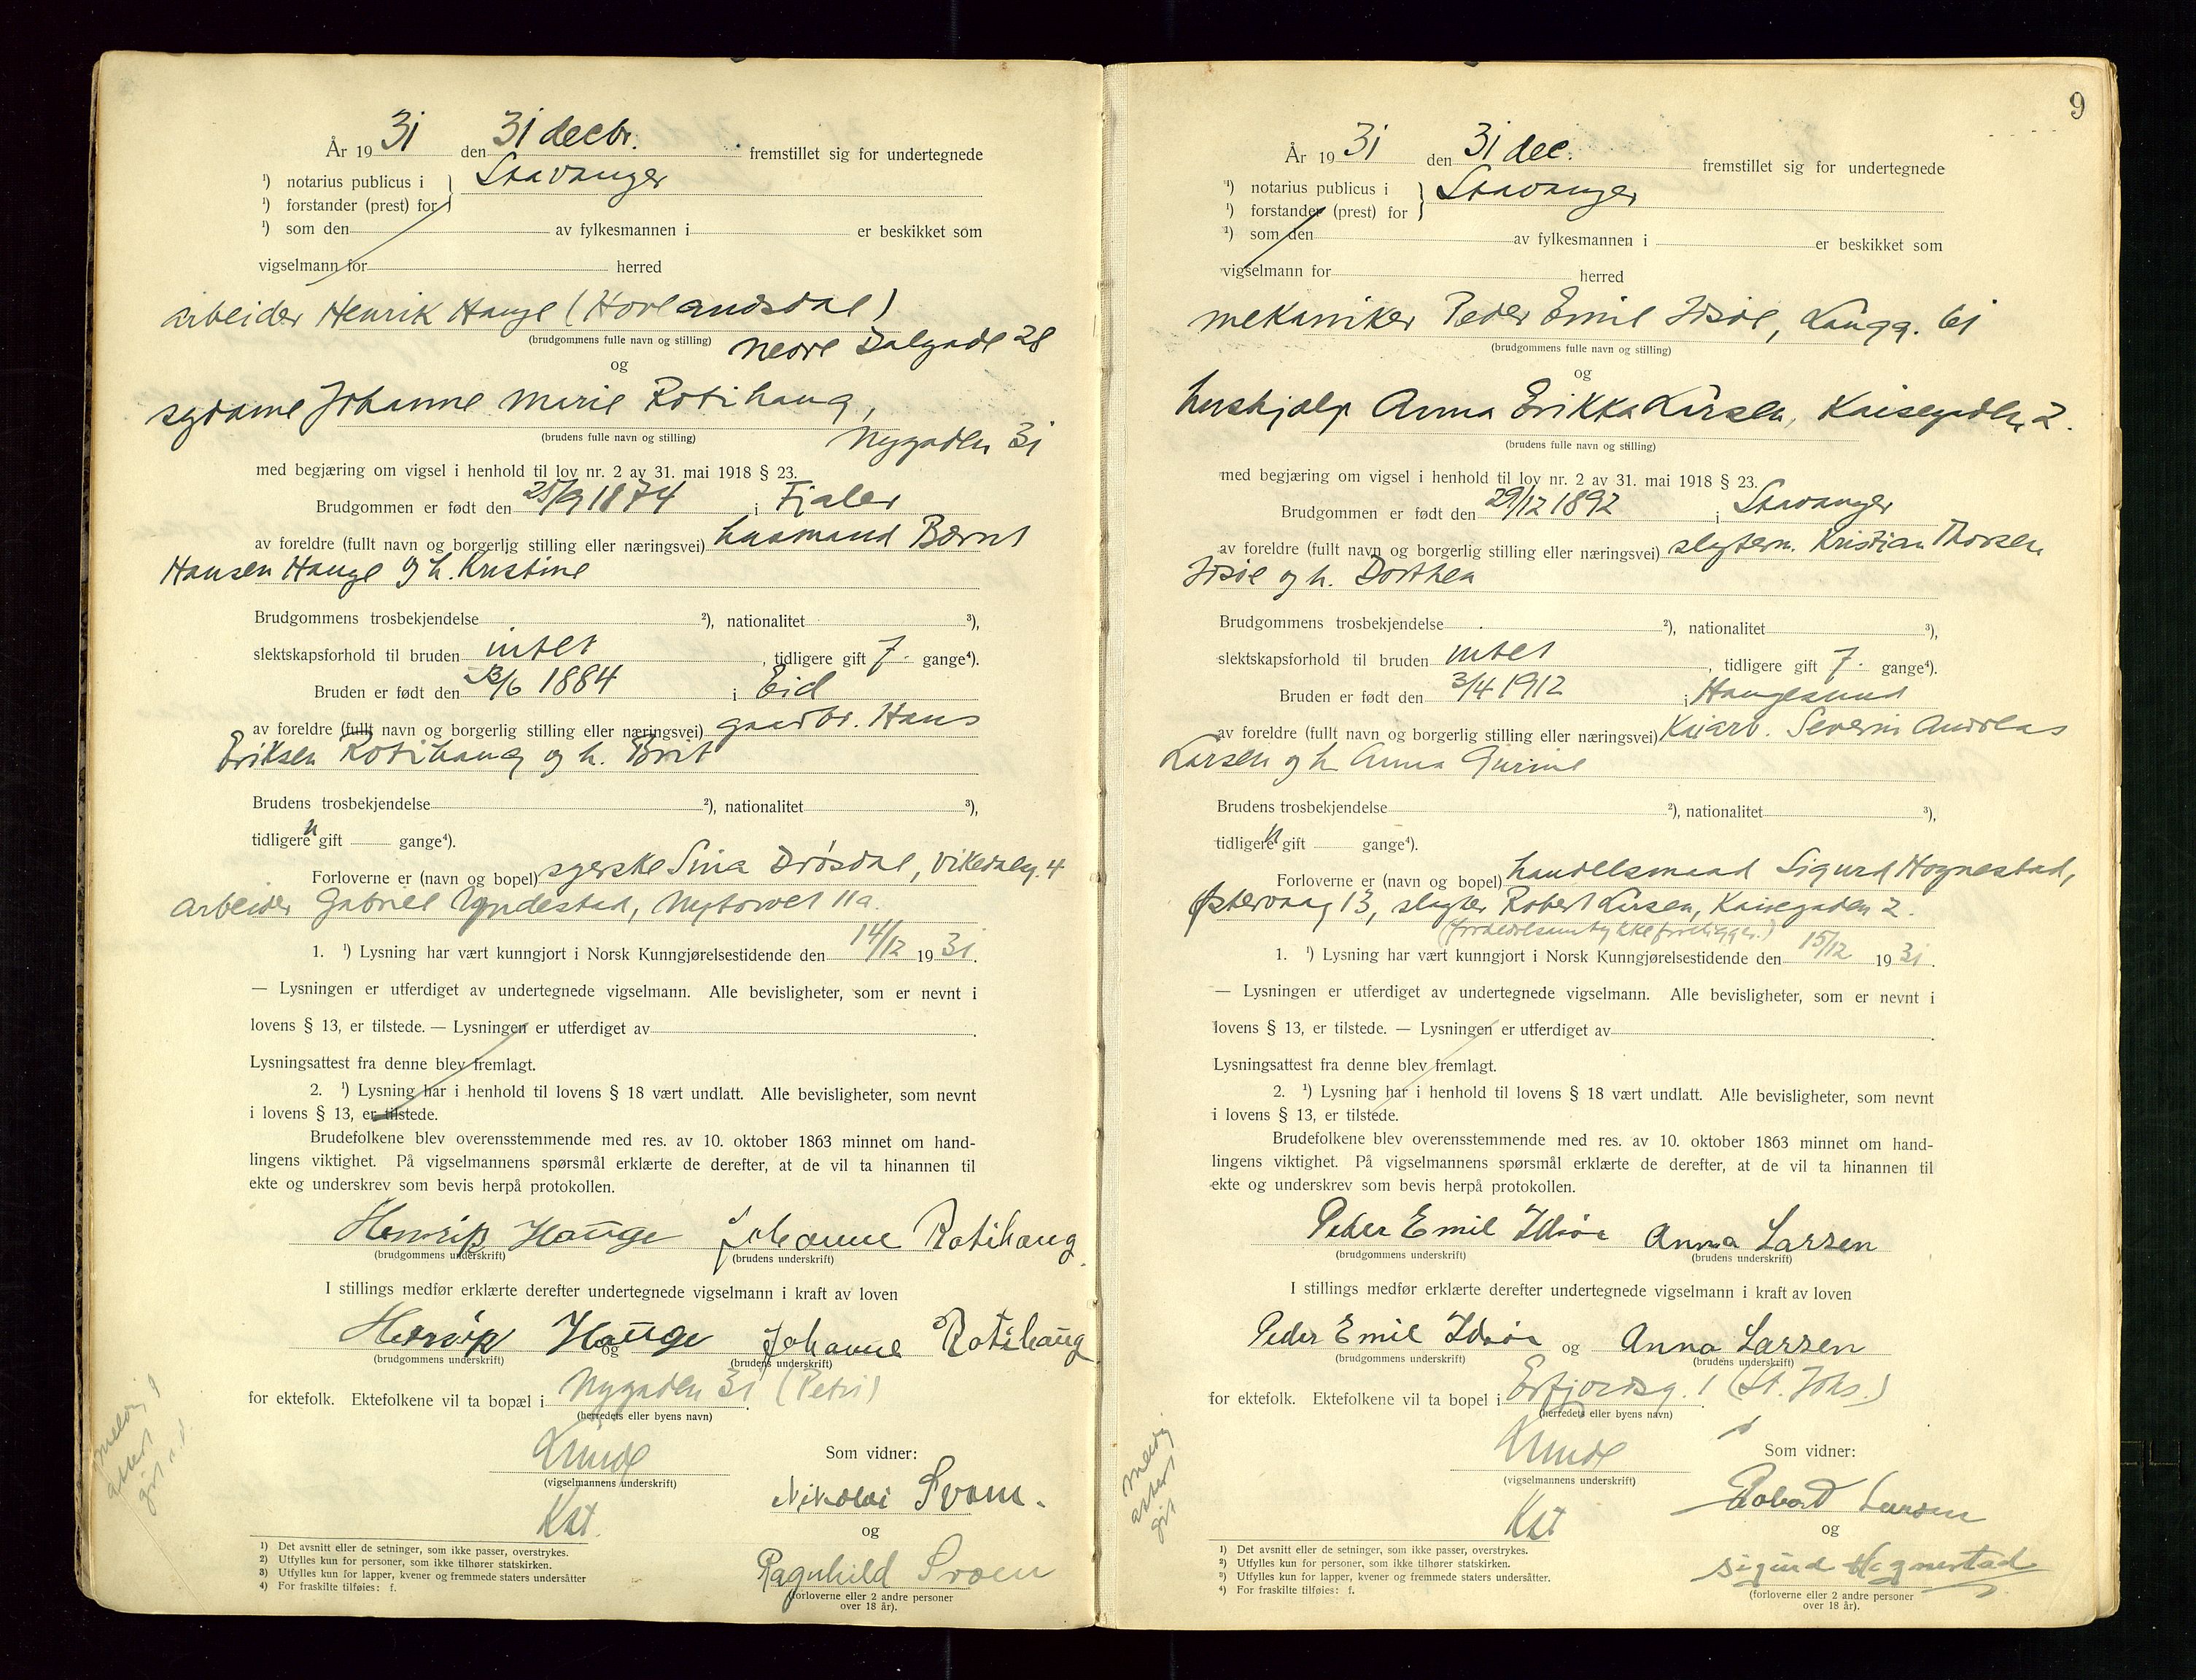 År 19 31 den 31 decbr. fremstillet sig for undertegnede
¹) notarius publicus i } Stavanger
¹) forstander (prest) for
¹) som den av fylkesmannen i er beskikket som
vigselmann for herred
arbeider Henrik Hauge (Hovlandsdal)
(brudgommens fulle navn og stilling) nedre Dalgade 28
og
sydame Johanne Marie Rotihaug,
(brudens fulle navn og stilling) Nygaden 31
med begjæring om vigsel i henhold til lov nr. 2 av 31. mai 1918 § 23.
Brudgommen er født den 25/9 1874 i Fjaler
av foreldre (fullt navn og borgerlig stilling eller næringsvei) husmand Bernt
Hansen Hauge og h. Kristine
Brudgommens trosbekjendelse ²), nationalitet ³),
slektskapsforhold til bruden intet, tidligere gift 7. gange⁴).
Bruden er født den /6 1884 i Eid
av foreldre (fullt navn og borgerlig stilling eller næringsvei) gaardbr. Hans
Eriksen Rotihaug og h. Brit
Brudens trosbekjendelse ²), nationalitet ³),
tidligere n gift gange⁴).
Forloverne er (navn og bopel) syerske Sina Drøsdal, Vikedalsg. 4
arbeider Gabriel Yndestad, Nytorvet 11a.
1. ¹) Lysning har vært kunngjort i Norsk Kunngjørelsestidende den 14/12 19 31.
— Lysningen er utferdiget av undertegnede vigselmann. Alle bevisligheter, som er nevnt i
lovens § 13, er tilstede. — Lysningen er utferdiget av .
Lysningsattest fra denne blev fremlagt.
2. ¹) Lysning har i henhold til lovens § 18 vært undlatt. Alle bevisligheter, som nevnt
i lovens § 13, er tilstede.
Brudefolkene blev overensstemmende med res. av 10. oktober 1863 minnet om hand-
lingens viktighet. På vigselmannens spørsmål erklærte de derefter, at de vil ta hinannen til
ekte og underskrev som bevis herpå protokollen.
Henrik Hauge Johanne Rotihaug
(brudgommens underskrift) (brudens underskrift)
I stillings medfør erklærte derefter undertegnede vigselmann i kraft av loven
Henrik Hauge og Johanne Rotihaug
(brudgommens underskrift) (brudens underskrift)
for ektefolk. Ektefolkene vil ta bopæl i Nygaden 31 (Petri)
(herredets eller byens navn)
melding
attest
git
Som vidner:
(vigselmannens underskrift)
Nikolai Svoen.
Kst.
og
Ragnhild Svoen
(forloverne eller 2 andre personer
over 18 år).
1) Det avsnitt eller de setninger, som ikke passer, overstrykes.
2) Utfylles kun for personer, som ikke tilhører statskirken.
3) Utfylles kun for lapper, kvener og fremmede staters undersåtter
4) For fraskilte tilføies: f.
9
År 19 31 den 31 dec. fremstillet sig for undertegnede
¹) notarius publicus i } Stavanger
¹) forstander (prest) for
¹) som den av fylkesmannen i er beskikket som
vigselmann for herred
mekaniker Peder Emil Idsøe, Langg. 61
(brudgommens fulle navn og stilling)
og
hushjælp Anna Erikka Larsen, Kaisegaden 2.
(brudens fulle navn og stilling)
med begjæring om vigsel i henhold til lov nr. 2 av 31. mai 1918 § 23.
Brudgommen er født den 29/12 1892 i Stavanger
av foreldre (fullt navn og borgerlig stilling eller næringsvei) slagterm. Kristian Thorsen
Idsøe og h. Dorthea
Brudgommens trosbekjendelse ²), nationalitet ³),
slektskapsforhold til bruden intet, tidligere gift 7. gange⁴).
Bruden er født den 3/4 1912 i Haugesund
av foreldre (fullt navn og borgerlig stilling eller næringsvei) Kaiarb. Severin Andreas
Larsen og h Anna Gurine
Brudens trosbekjendelse ²), nationalitet ³),
tidligere n gift gange⁴).
Forloverne er (navn og bopel) handelsmand Sigurd Hognestad,
Østervaag 13, slagter Robert Larsen, Kaisegaden 2.
1. ¹) Lysning har vært kunngjort i Norsk Kunngjørelsestidende den 15/12 19 31.
— Lysningen er utferdiget av undertegnede vigselmann. Alle bevisligheter, som er nevnt i
lovens § 13, er tilstede. — Lysningen er utferdiget av .
Lysningsattest fra denne blev fremlagt.
2. ¹) Lysning har i henhold til lovens § 18 vært undlatt. Alle bevisligheter, som nevnt
i lovens § 13, er tilstede.
Brudefolkene blev overensstemmende med res. av 10. oktober 1863 minnet om hand-
lingens viktighet. På vigselmannens spørsmål erklærte de derefter, at de vil ta hinannen til
ekte og underskrev som bevis herpå protokollen.
Peder Emil Idsøe Anna Larsen
(brudgommens underskrift) (brudens underskrift)
I stillings medfør erklærte derefter undertegnede vigselmann i kraft av loven
Peder Emil Idsøe og Anna Larsen
(brudgommens underskrift) (brudens underskrift)
for ektefolk. Ektefolkene vil ta bopel i Erfjordsg. 1 (St. Johs.)
(herredets eller byens navn)
melding
attest
git
Som vidner:
(vigselmannens underskrift)
Robert Larsen
Kst
og
Sigurd Hognestad
(forloverne eller 2 andre personer
over 18 år).
1) Det avsnitt eller de setninger, som ikke passer, overstrykes.
2) Utfylles kun for personer, som ikke tilhører statskirken.
3) Utfylles kun for lapper, kvener og fremmede staters undersåtter.
4) For fraskilte tilføies: f.